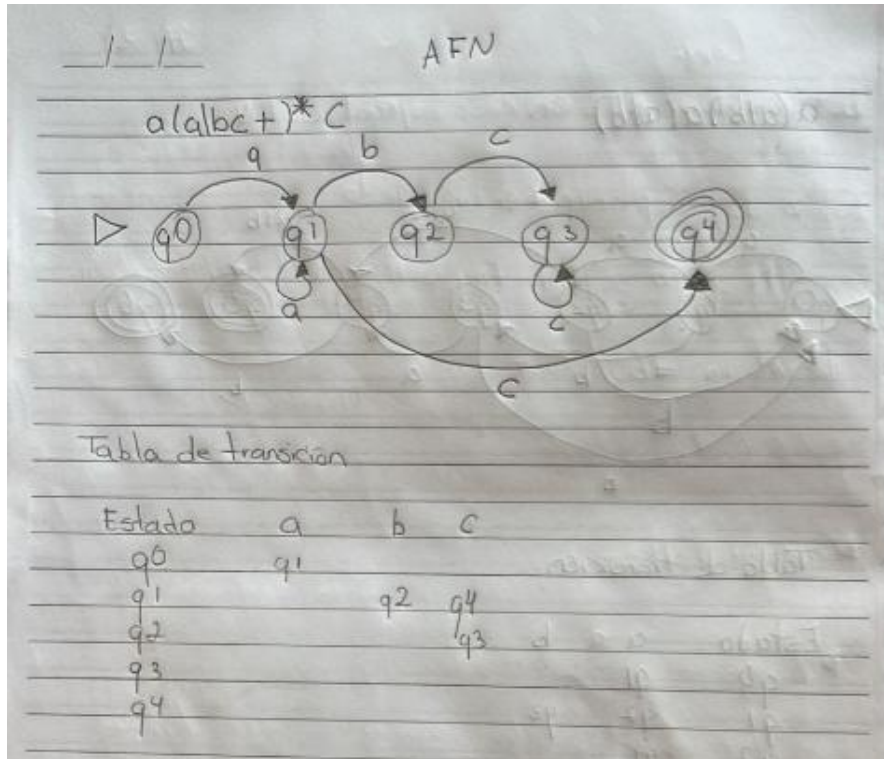 __/__/__
AFN
a(a|bc+)* C
a b c
q0 q1 q2 q3 q4
a c
C
Tabla de transición
Estado a b c
q0 q1
q1 q2 q4
q2 q3
q3
q4